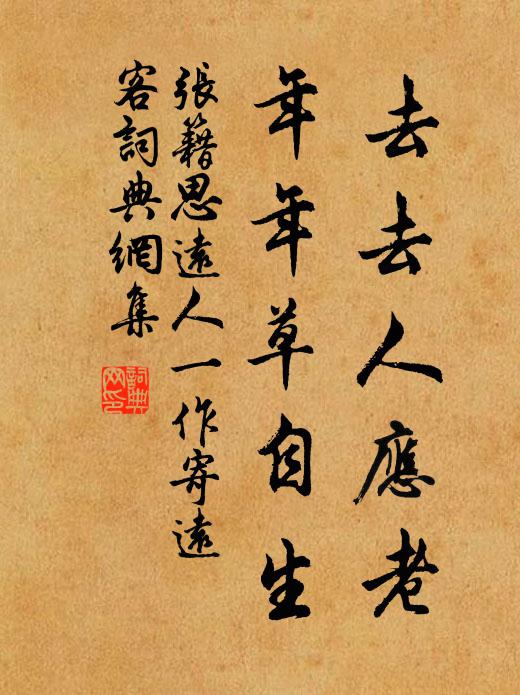 去去人應老
年年草自生
張籍思遠人一作寄遠
客詞典網集
詞典
网印